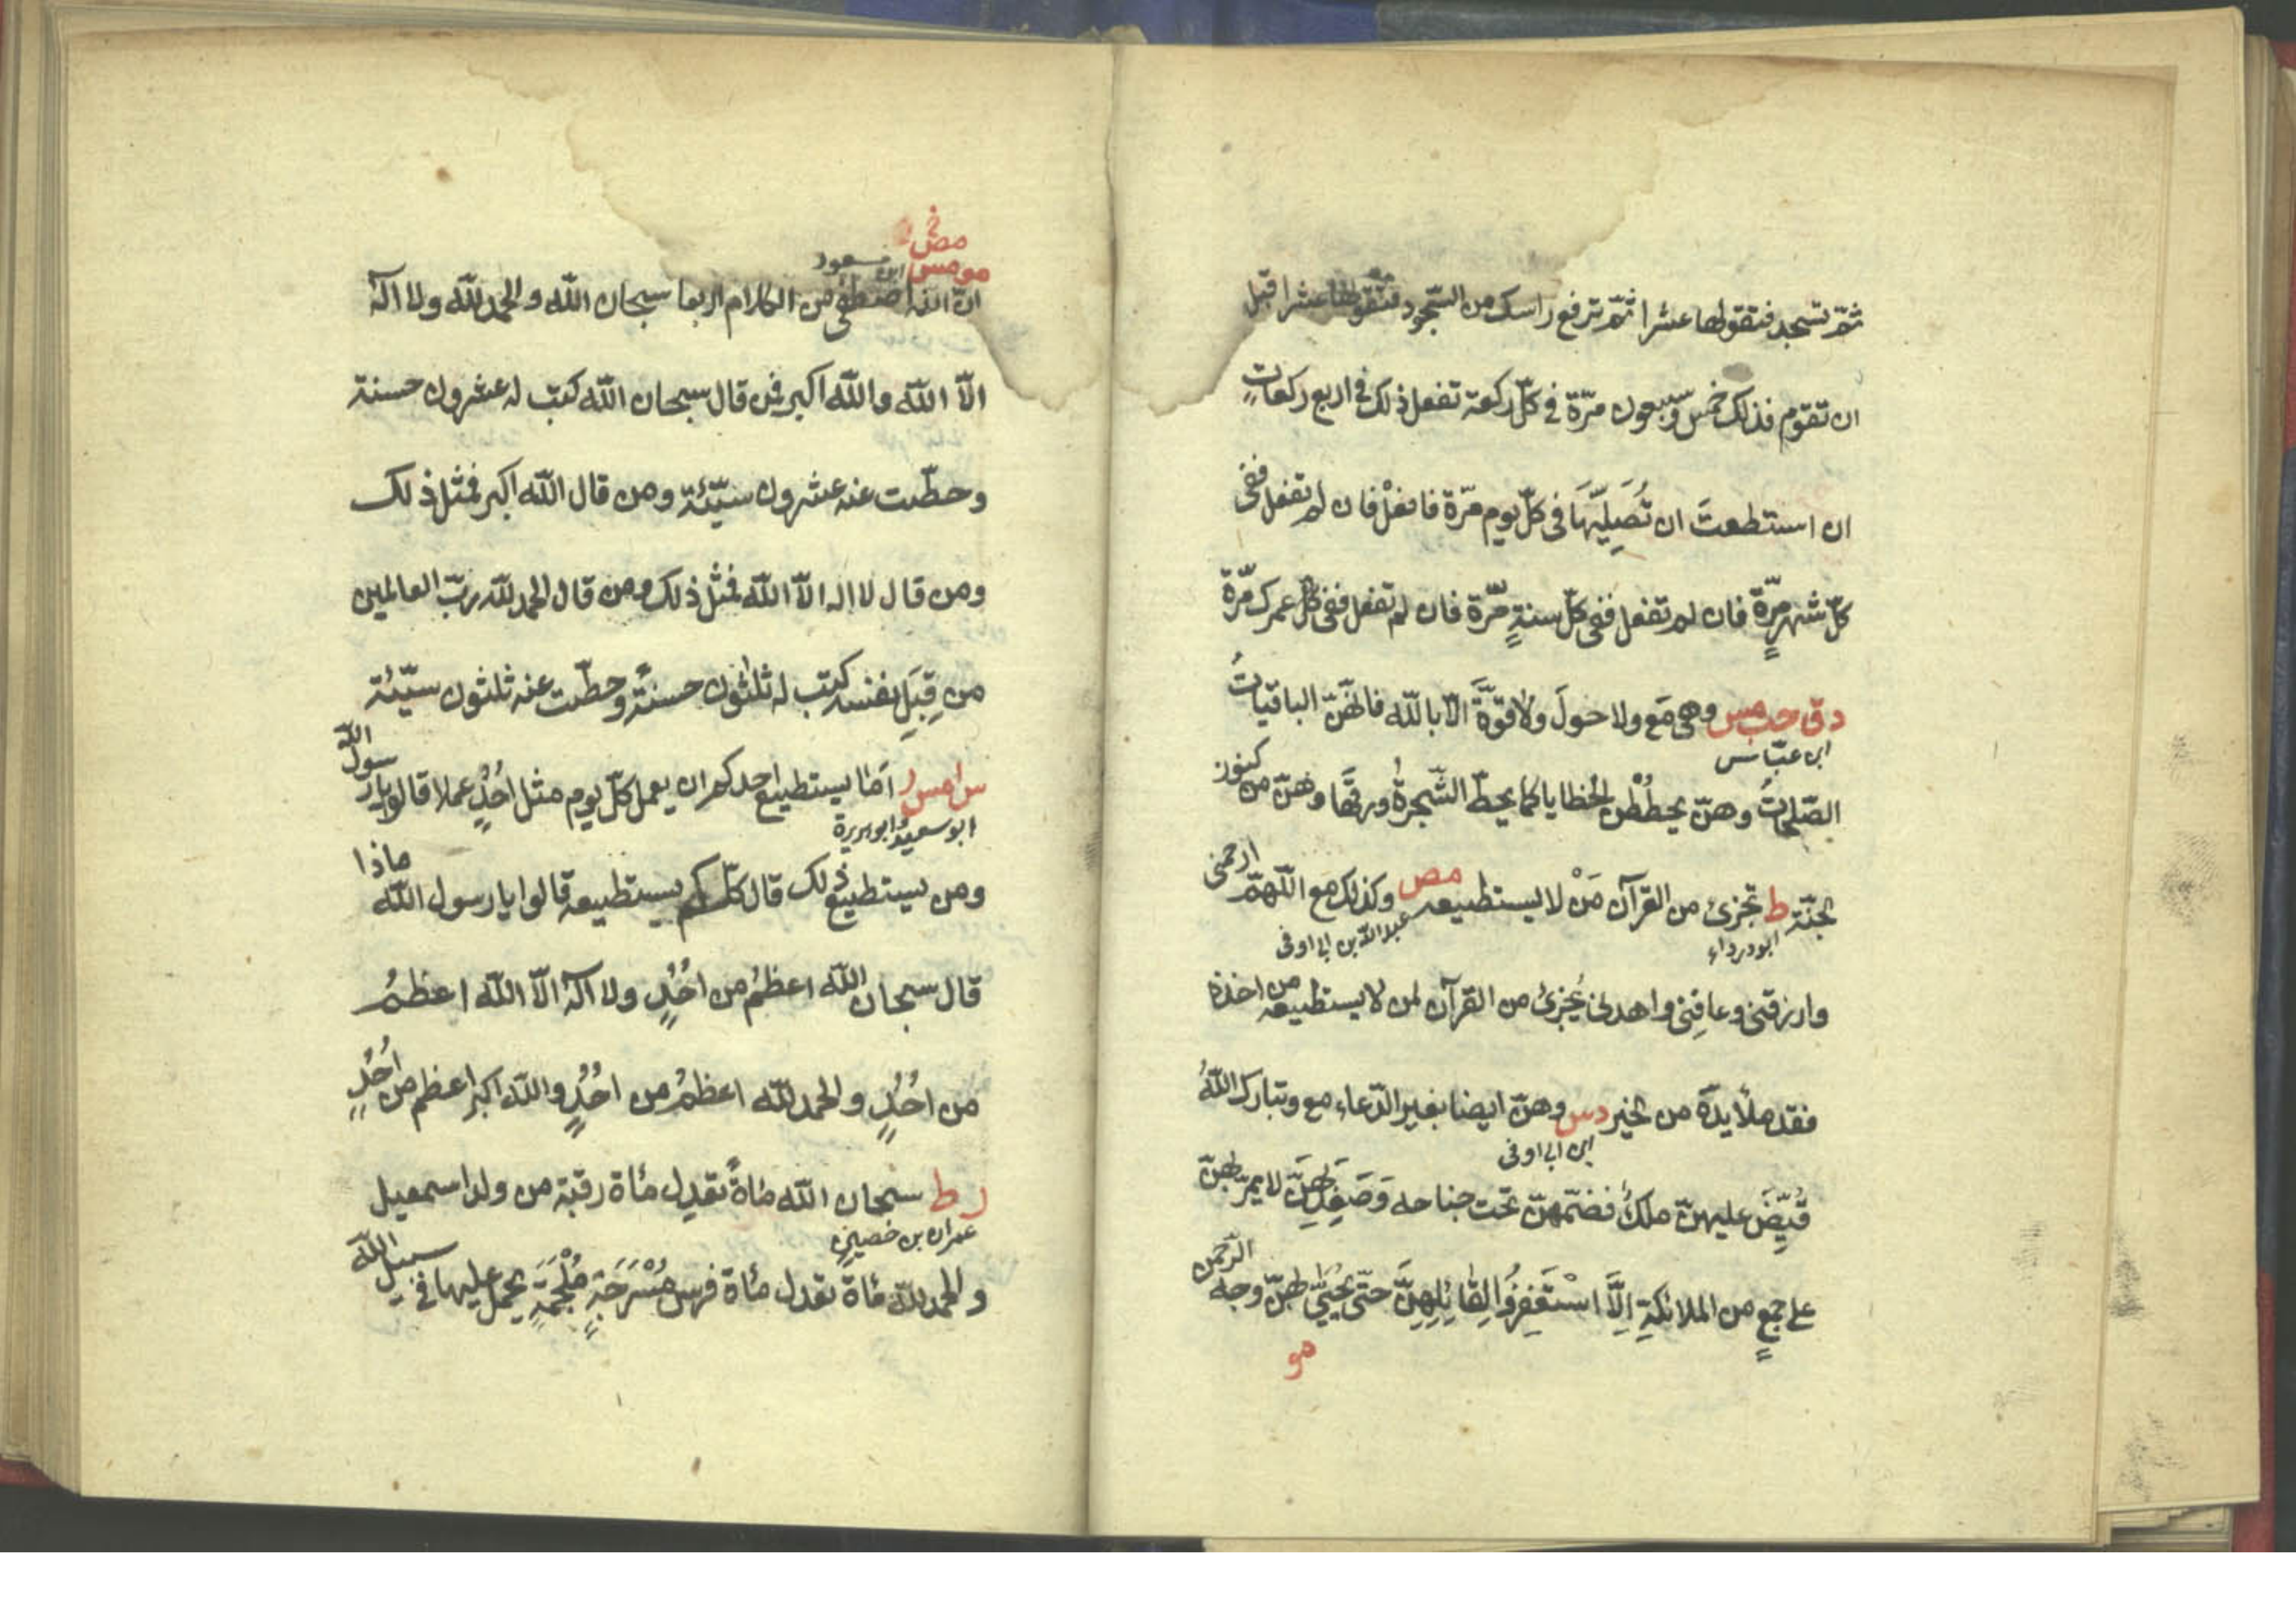 ثمّ تسجد فتقولها عشرا ثمّ ترفع راسك من السّجود فتقولها عشرا قبل
ان تقوم فذلك خمس وّسبعون مرّة في كلّ ركعة تفعل ذلك في اربع ركعاتٍ
ان استطعتَ ان تُصَلِيّهَا في كلّ يوم مرّة فافعلْ فان لم تفعل ففى
كلّ شهر مرّةً فان لم تفعل ففى كلّ سنةٍ مّرّة فان لم تفعل ففى كلّ عمرك مرّة
دق حب مس وهي مَع ولا حولَ ولا قوّةَ الّا بالله فانّهنّ الباقياتُ
ابن عبّاس
الصّلحاتُ وهنّ يحططْن الخطايا كما يحطّ الشّجرةُ ورقَهَا وهنّ من كنوز
الجنّة ط تجزئ من القرآن مَنْ لا يستطيعه مص وكذلك مع اللّهمّ ارحمنى
ابو درداء عبد الله بن ابى اوفى
وارزقنى وعافِنِى واهدنى يُجزئ من القرآن لمن لا يستطيعه من اخذه
فقد ملأ يده من الخير دس وهنّ ايضا بغير الدّعاء مع وتبارك اللهُ
ابن ابى اوفى
قُبِّضَ عليهنّ ملكٌ فضمّهنّ تحت جناحه وَصَعِدَ بِهِنَّ لا يمرّ بهنّ
على جمعٍ من الملائكةِ اِلَّا اسْتَغفِرُوا لِقَائِلِهِنَّ حتّى يُحيّى بهنّ وجه الرّحمن
مو
مص
مو مس ابن مسعود
انّ الله اصطفى من الكلام اربعا سبحان الله والحمد لله ولا اله
الّا الله والله اكبر فمن قال سبحان الله كتب له عشرون حسنة
وحطّت عنه عشرون سيّئة ومن قال الله اكبر فمثل ذلك
ومن قال لا اله الّا الله فمثل ذلك ومن قال الحمد لله ربّ العالمين
من قِبَلِ نفسه كتب له ثلثون حسنةً وحطّت عنه ثلثون سيّئة
س ا مس ر اما يستطيع احدكم ان يعمل كلّ يوم مثل اُحُدٍ عملا قالوا يا رسول الله
ابو سعيد وابو هريرة
ومن يستطيع ذلك قال كلّكم يستطيعه قالوا يا رسول الله ماذا
قال سبحان الله اعظمُ من اُحُدٍ ولا اله الّا الله اعظمُ
من اُحُدٍ والحمد لله اعظمُ من اُحُدٍ والله اكبر اعظم من اُحُدٍ
ر ط سبحان الله مائةً تعدل مائة رقبة من ولد اسمعيل
عمران بن حصين
والحمد لله مائة تعدل مائة فرس مُسْرَجَةٍ مُلْجَمَةٍ يحمل عليها في سبيل الله